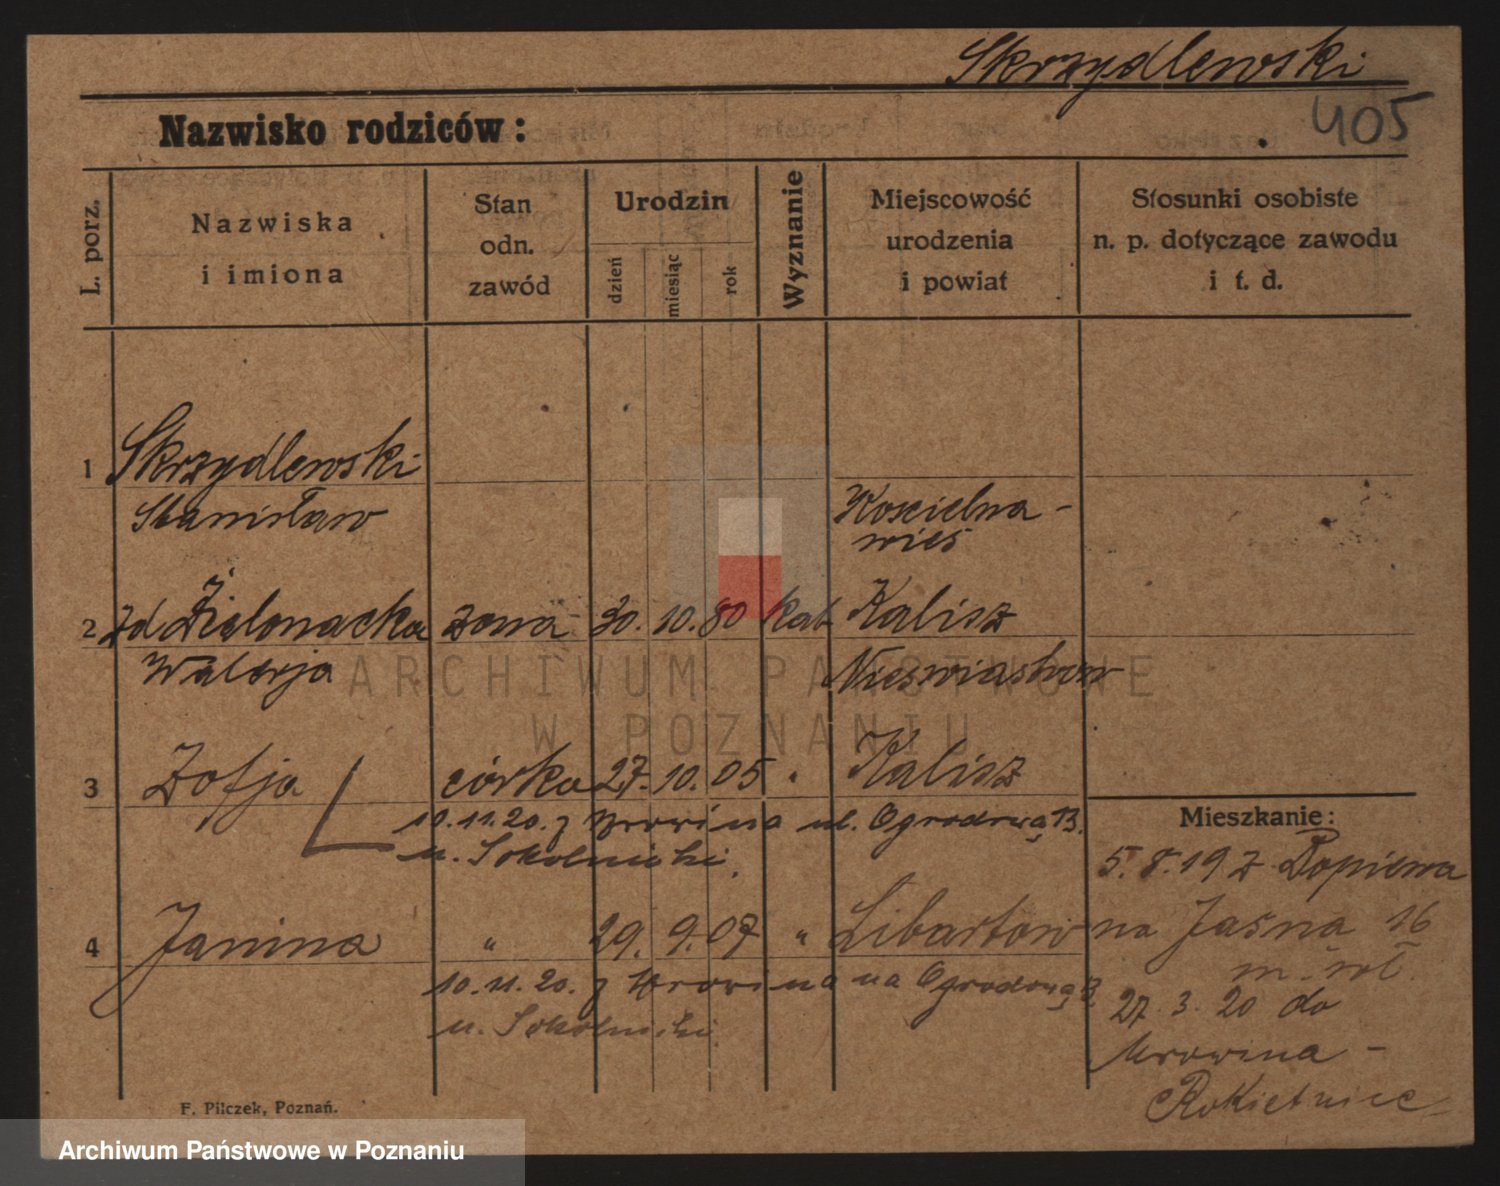 Skrzydlewski
405
Nazwisko rodziców:
L. porz.
Nazwiska
i imiona
Stan
odn.
zawód
Urodzin
dzień
miesiąc
rok
Wyznanie
Miejscowość
urodzenia
i powiat
Stosunki osobiste
n. p. dotyczące zawodu
i t. d.
1 Skrzydlewski
Stanisław
Koscielna-
wieś
2 zd Zielonacka żona 30. 10. 80 kat. Kalisz
Walerja
3 Zofja córka 27. 10. 05 " Kalisz
10.11.20. z Mrowina ul. Ogrodowa 13.
u. Sokolnicki.
4 Janina " 29. 9. 07 " Libartow
10.11.20. z Mrowina na Ogrodową
u. Sokolnicki
Mieszkanie:
5. 8. 19 z Dopiewa
na Jasna 16
27. 3. 20 do
Mrowina -
Rokietnice
F. Pilczek, Poznań.
ARCHIWUM PAŃSTWOWE
W POZNANIU
Archiwum Państwowe w Poznaniu